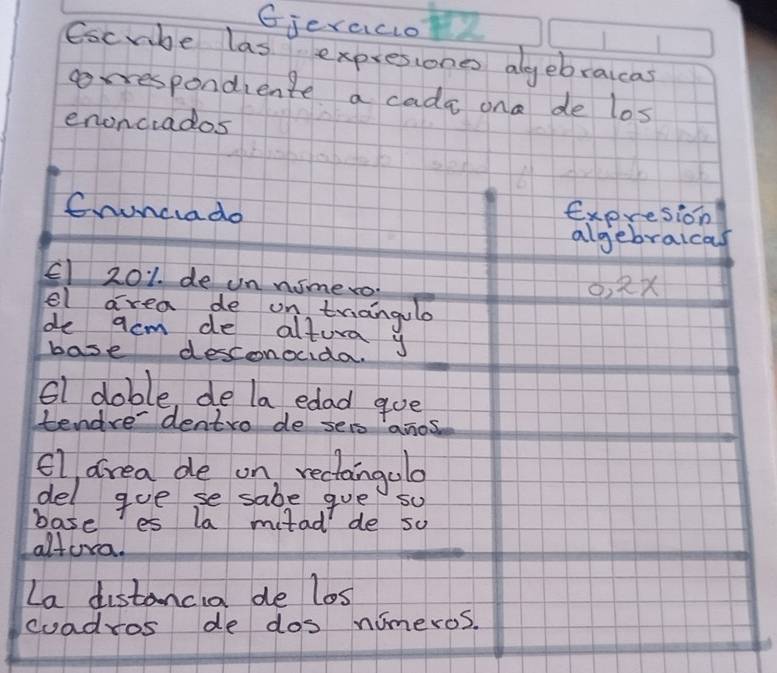 Ejercicio #2
Escribe las expresiones algebraicas
correspondiente a cada una de los
enunciados
Enunciado
Expresión
algebraicas
El 20% de un número.
0,2x
el área de un triángulo
de 9cm de altura y
base desconocida.
El doble de la edad que
tendre dentro de seis años
El área de un rectángulo
del que se sabe que su
base es la mitad de su
altura.
La distancia de los
cuadros de dos números.